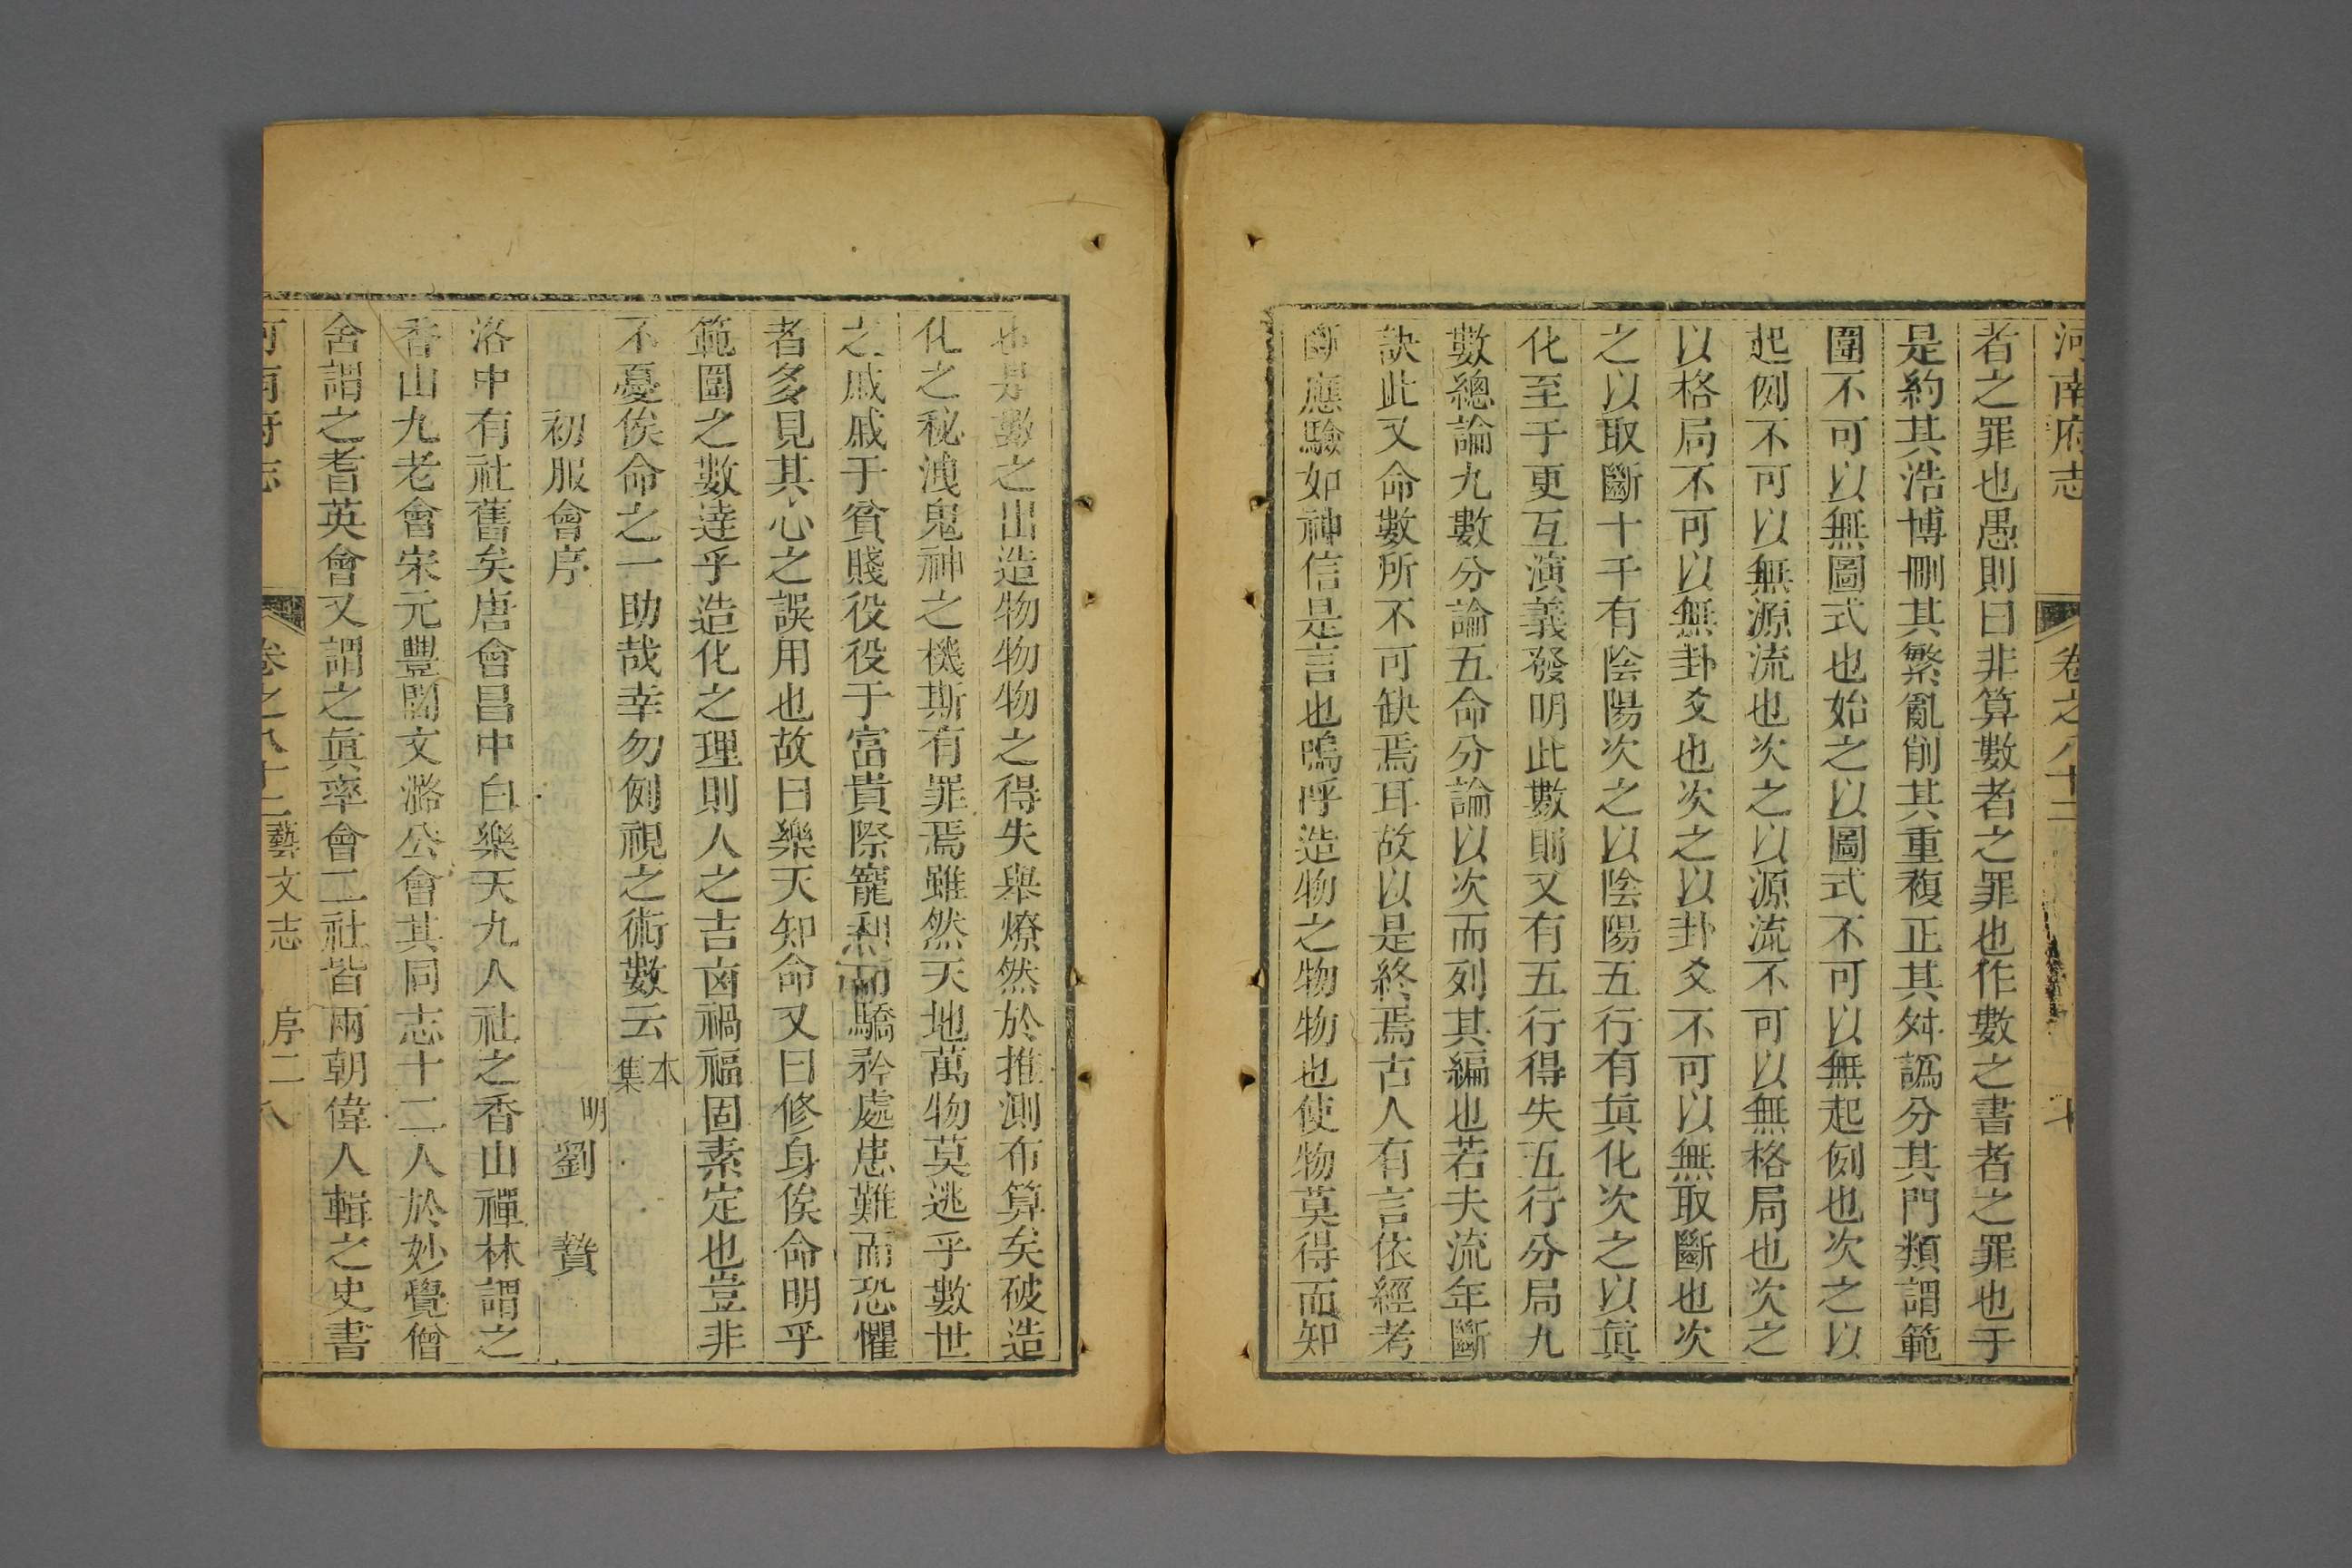 河南府志 卷之八十二
者之罪也愚則曰非算數者之罪也作數之書者之罪也于
是約其浩博刪其繁亂削其重複正其舛譌分其門類謂範
圍不可以無圖式也始之以圖式不可以無起例也次之以
起例不可以無源流也次之以源流不可以無格局也次之
以格局不可以無卦爻也次之以卦爻不可以無取斷也次
之以取斷十千有陰陽次之以陰陽五行有眞化次之以眞
化至于更互演義發明此數則又有五行得失五行分局九
數總論九數分論五命分論以次而列其編也若夫流年斷
訣此又命數所不可缺焉耳故以是終焉古人有言依經考
斷應驗如神信是言也嗚呼造物之物物也使物莫得而知
也是數之出造物物物之得失舉燎然於推測布算矣破造
化之秘洩鬼神之機斯有罪焉雖然天地萬物莫逃乎數世
之戚戚于貧賤役役于富貴際寵利而驕矜處患難而恐懼
者多見其心之誤用也故曰樂天知命又曰修身俟命明乎
範圍之數達乎造化之理則人之吉凶禍福固素定也豈非
不憂俟命之一助哉幸勿例視之術數云 本集
初服會序 明劉 贄
洛中有社舊矣唐會昌中白樂天九人社之香山禪林謂之
香山九老會宋元豐間文潞公會其同志十二人於妙覺僧
舍謂之耆英會又謂之眞率會二社皆兩朝偉人輯之史書
河南府志 卷之八十二 藝文志 序二 八